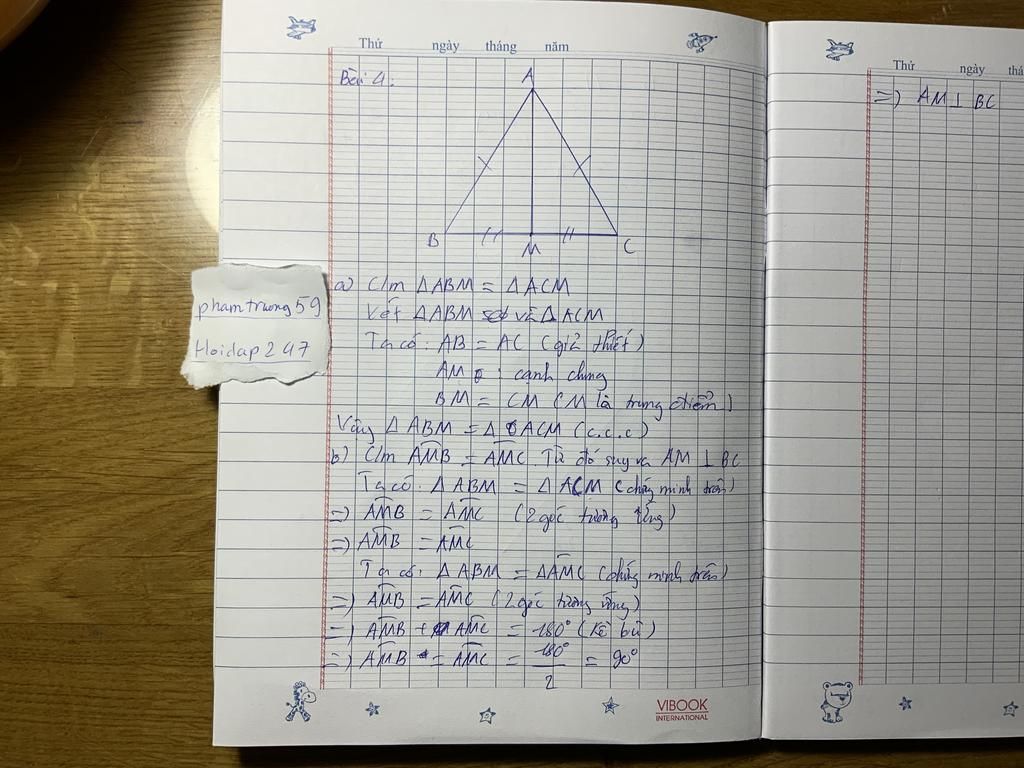 Thứ ngày tháng năm
Bài 4:
A
B
M
C
a) C/m ΔABM = ΔACM
Xét ΔABM và ΔACM
Ta có: AB = AC (giả thiết)
AM : cạnh chung
BM = CM (M là trung điểm)
Vậy ΔABM = ΔACM (c.c.c)
b) C/m AMB = AMC. Từ đó suy ra AM ⊥ BC
Ta có: ΔABM = ΔACM (chứng minh trên)
=) AMB = AMC (2 góc tương ứng)
=) AMB = AMC
Ta có: ΔABM = ΔAMC (chứng minh trên)
=) AMB = AMC (2 góc tương ứng)
=) AMB + AMC = 180° (kề bù)
=) AMB = AMC = 180°/2 = 90°
VIBOOK
INTERNATIONAL
phamtruong59
Hoidap247
Thứ ngày thá
=) AM ⊥ BC